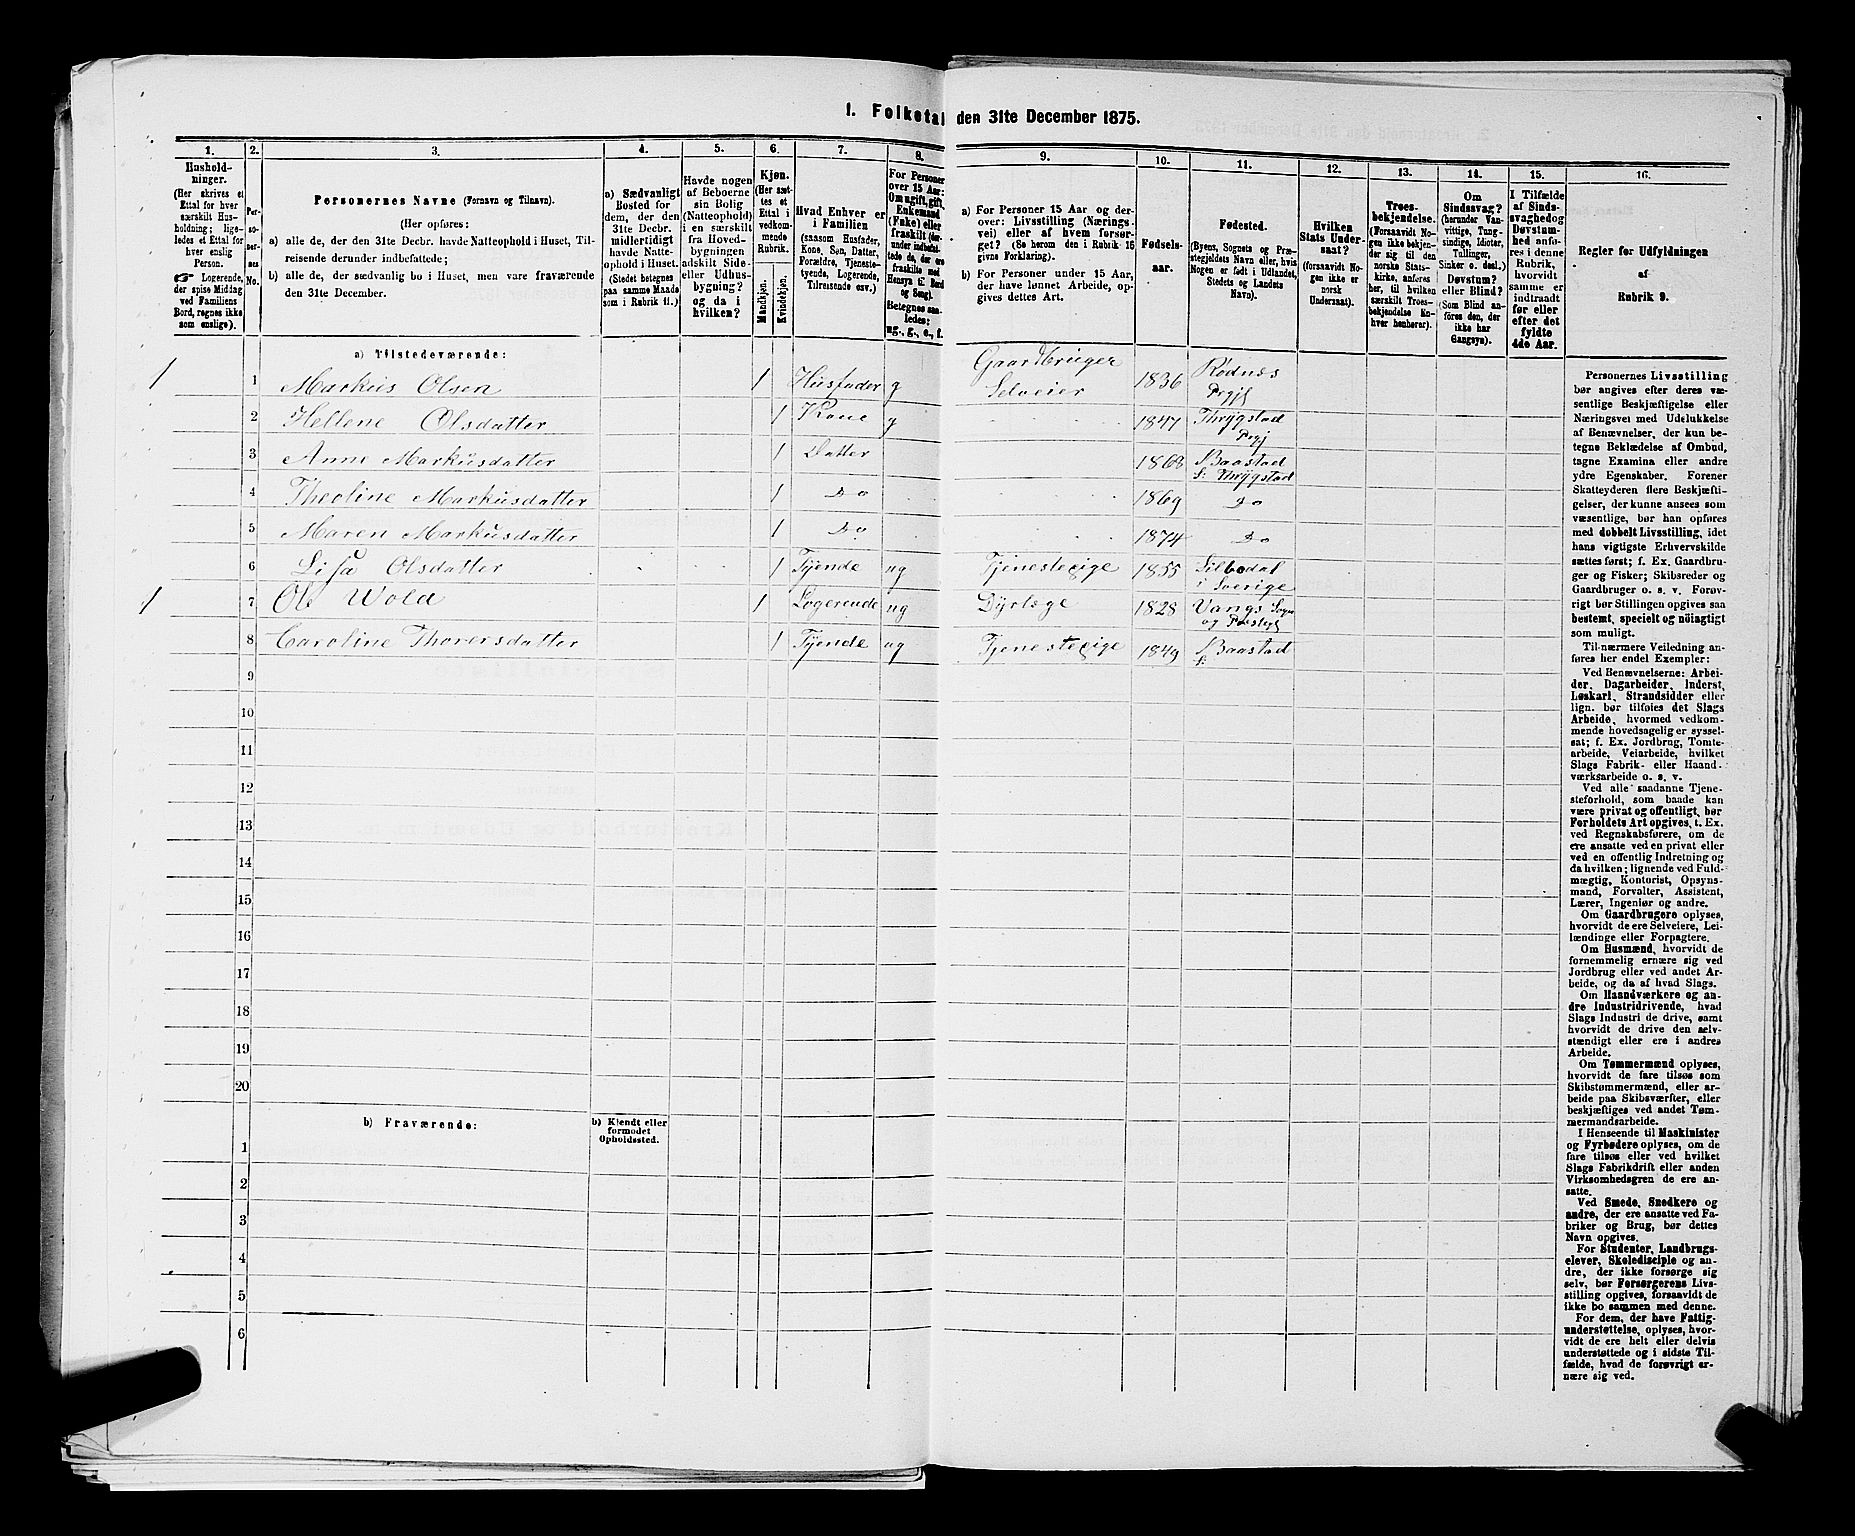 1. Folketal den 31te December 1875.
1.
Hushold-
ninger.
(Her skrives et
Ettal for hver
særskilt Hus-
holdning; lige-
ledes et Ettal for
hver enslig
Person.
Logerende,
der spise Middag
ved Familiens
Bord, regnes ikke
som enslige).
2.
Per-
so-
ner-
nes
No.
3.
Personernes Navne (Fornavn og Tilnavn).
(Her opføres:
a) alle de, der den 31te Decbr. havde Natteophold i Huset, Til-
reisende derunder indbefattede;
b) alle de, der sædvanlig bo i Huset, men vare fraværende
den 31te December.
4.
a) Sædvanligt
Bosted for
dem, der den
31te Decbr.
midlertidigt
havde Natte-
ophold i Huset.
(Stedet betegnes
paa samme Maade
som i Rubrik 11.)
5.
Havde nogen
af Beboerne
sin Bolig
(Natteophold)
i en særskilt
fra Hoved-
bygningen
adskilt Side-
eller Udhus-
bygning?
og da i
hvilken?
6.
Kjøn.
(Her sæt-
tes et
Ettal i
vedkom-
mende
Rubrik.
Mandkjøn.
Kvindekjøn.
7.
Hvad Enhver er
i Familien
(saasom Husfader,
Kone, Søn, Datter,
Forældre, Tjeneste-
tyende, Logerende,
Tilreisende osv.)
8.
For Personer
over 15 Aar:
Om ugift, gift,
Enkemand
(Enke) eller
fraskilt (der-
under indbefat-
tede de, der ere
fraskilte med
Hensyn til Bord
og Seng).
Betegnes saa-
ledes:
ug., g., e., f.
9.
a) For Personer 15 Aar og der-
over: Livsstilling (Nærings-
vei) eller af hvem forsør-
get? (Se herom den i Rubrik 16
givne Forklaring).
b) For Personer under 15 Aar,
der have lønnet Arbeide, op-
gives dettes Art.
10.
Fødsels-
aar.
11.
Fødested.
(Byens, Sognets og Præ-
stegjeldets Navn eller, hvis
Nogen er født i Udlandet,
Stedets og Landets
Navn).
12.
Hvilken
Stats Under-
saat?
(forsaavidt No-
gen ikke er
norsk
Undersaat).
13.
Troes-
bekjendelse.
(Forsaavidt No-
gen ikke bekjen-
der sig til den
norske Stats-
kirke, anføres
her, til hvilken
særskilt Troes-
bekjendelse En-
hver henhører).
14.
Om
Sindssvag?
(herunder Van-
vittige, Tung-
sindige, Idioter,
Tullinger,
Sinker o. desl.)
Døvstum?
eller Blind?
(Som Blind an-
føres den, der
ikke har
Gangsyn).
15.
I Tilfælde
af Sinds-
svaghed og
Døvstum-
hed anfø-
res i denne
Rubrik,
hvorvidt
samme er
indtraadt
før eller
efter det
fyldte
4de Aar.
16.
Regler for Udfyldningen
af
Rubrik 9.
a) Tilstedeværende:
1 1 Markus Olsen 1 Husfader g Gaardbruger Selveier 1836 Rødnæs Prgjl
2 Hellene Olsdatter 1 Kone g 1847 Thrygstad Prgj
3 Anne Markusdatter 1 Datter 1868 Baastad S: Thrygstad
4 Theoline Markusdatter 1 Do 1869 Do
5 Maren Markusdatter 1 Do 1874 Do
6 Lisa Olsdatter 1 Tyende ug Tjenestepige 1855 Silbodal i Sverige
1 7 Ole Wold 1 Logerende ug Dyrlæge 1828 Vangs Sogn og Præstegj
8 Caroline Thorersdatter 1 Tyende ug Tjenestepige 1849 Baastad S:
9
10
11
12
13
14
15
16
17
18
19
20
b) Fraværende:
b) Kjendt eller
formodet
Opholdssted.
1
2
3
4
5
6
Personernes Livsstilling
bør angives efter deres væ-
sentlige Beskjæftigelse eller
Næringsvei med Udelukkelse
af Benævnelser, der kun be-
tegne Beklædelse af Ombud,
tagne Examina eller andre
ydre Egenskaber. Forener
Skatteyderen flere Beskjæfti-
gelser, der kunne ansees som
væsentlige, bør han opføres
med dobbelt Livsstilling, idet
hans vigtigste Erhvervskilde
sættes først; f. Ex. Gaardbru-
ger og Fisker; Skibsreder og
Gaardbruger o. s. v. Forøv-
rigt bør Stillingen opgives saa
bestemt, specielt og nöiagtigt
som muligt.
Til nærmere Veiledning an-
føres her endel Exempler:
Ved Benævnelserne: Arbei-
der, Dagarbeider, Inderst,
Løskarl, Strandsidder eller
lign. bør tilføies det Slags
Arbeide, hvormed vedkom-
mende hovedsagelig er syssel-
sat; f. Ex. Jordbrug, Tomte-
arbeide, Veiarbeide, hvilket
Slags Fabrik- eller Haand-
værksarbeide o. s. v.
Ved alle saadanne Tjene-
steforhold, som baade kan
være privat og offentligt, bør
Forholdets Art opgives, t. Ex.
ved Regnskabsførere, om de
ere ansatte ved en privat eller
ved en offentlig Indretning og
da hvilken; lignende ved Fuld-
mægtig, Kontorist, Opsyns-
mand, Forvalter, Assistent,
Lærer, Ingeniør og andre.
Om Gaardbrugere oplyses,
hvorvidt de ere Selveiere, Lei-
lændinge eller Forpagtere.
Om Husmænd, hvorvidt de
fornemmelig ernære sig ved
Jordbrug eller ved andet Ar-
beide, og da af hvad Slags.
Om Haandværkere og an-
dre Industridrivende, hvad
Slags Industri de drive, samt
hvorvidt de drive den selv-
stændigt eller ere i andres
Arbeide.
Om Tømmermænd oplyses,
hvorvidt de fare tilsøs som
Skibstømmermænd, eller ar-
beide paa Skibsværfter, eller
beskjæftiges ved andet Tøm-
mermandsarbeide.
I Henseende til Maskinister
og Fyrbødere oplyses, om de
fare tilsøs eller ved hvilket
Slags Fabrikdrift eller anden
Virksomhedsgren de ere an-
satte.
Ved Smede, Snedkere og
andre, der ere ansatte ved Fa-
briker og Brug, bør dettes
Navn opgives.
For Studenter, Landbrugs-
elever, Skoledisciple og an-
dre, der ikke forsørge sig
selv, bør Forsørgerens Livs-
stilling opgives, forsaavidt de
ikke bo sammen med denne.
For dem, der have Fattig-
understøttelse, oplyses, hvor-
vidt de ere helt eller delvis
understøttede og i sidste Til-
fælde, hvad de forøvrigt er-
nære sig ved.